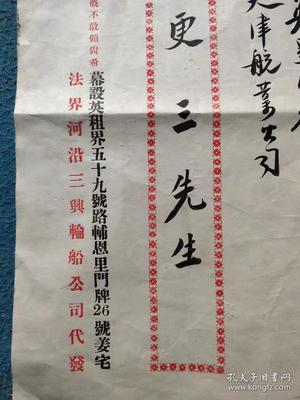 天津航業公司
更三先生
幕設英租界五十九號路輔恩里門牌26號姜宅
概不敢領尚希
法界河沿三興輪船公司代發
孔夫子旧书网